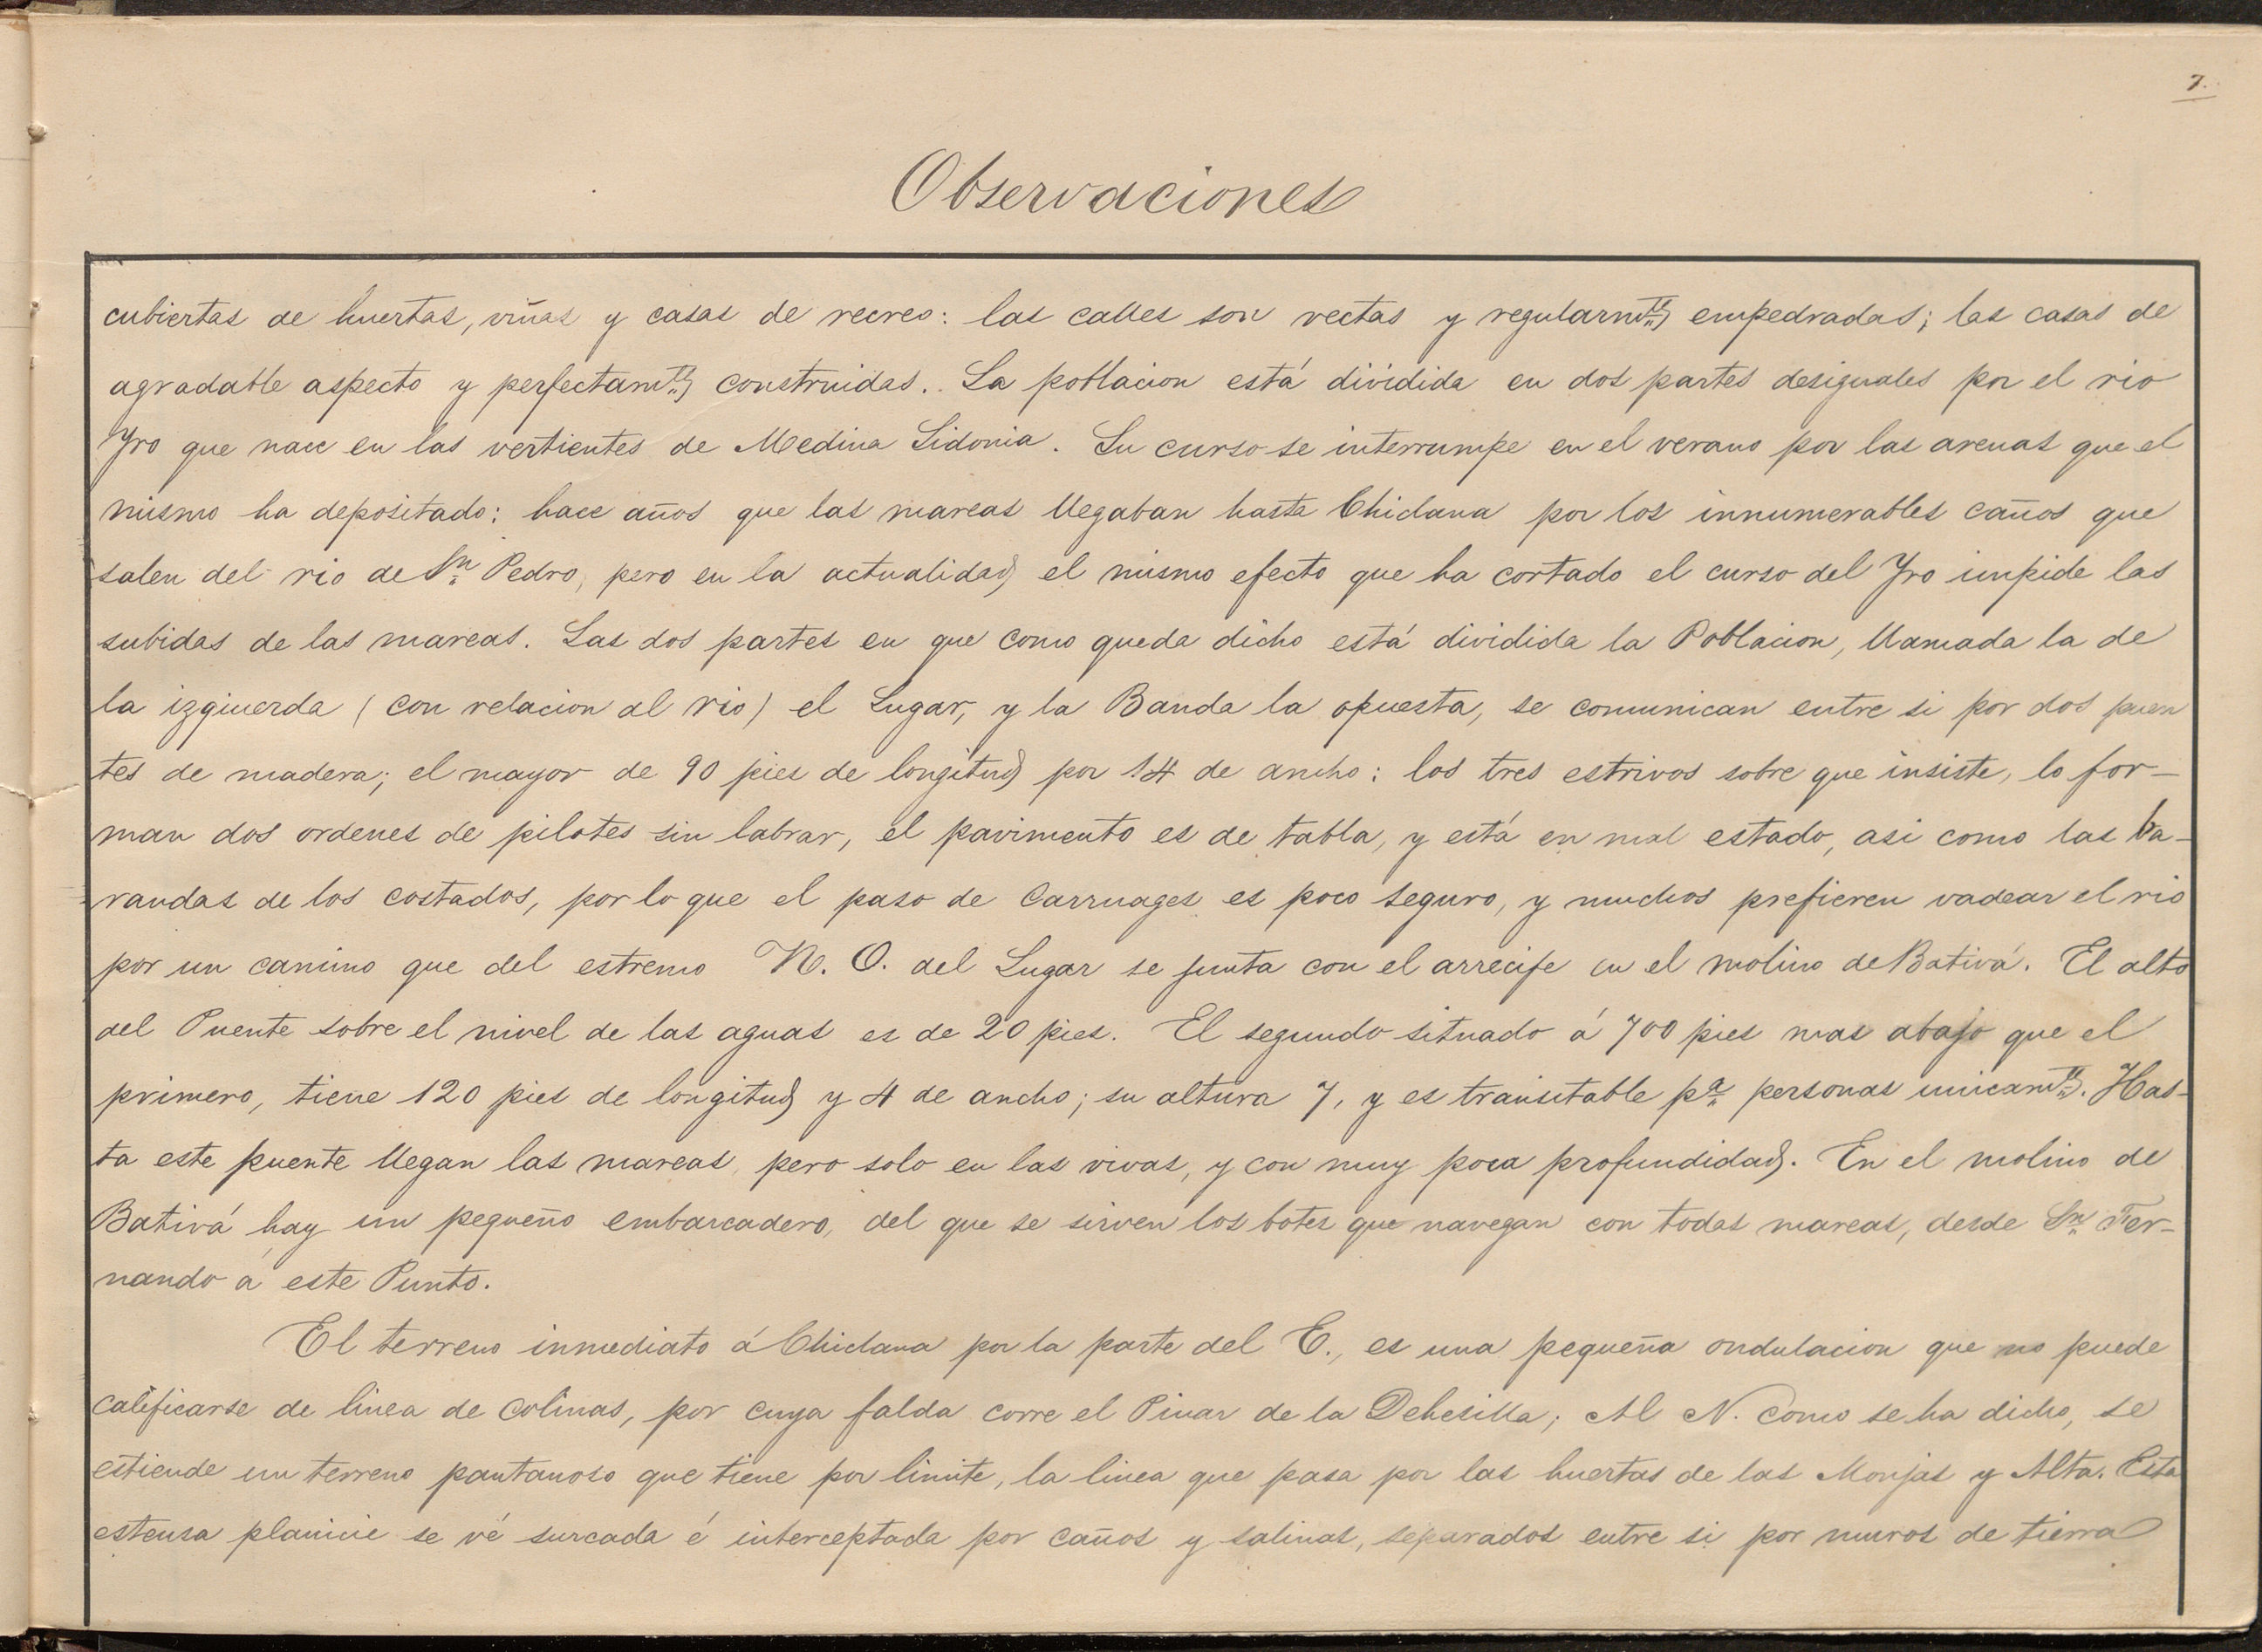 7.
Observaciones
cubiertas de huertas, viñas y casas de recreo: las calles son rectas y regularmte empedradas; las casas de
agradable aspecto y perfectamte construidas. La poblacion está dividida en dos partes desiguales por el rio
Yro que nace en las vertientes de Medina Sidonia. Su curso se interrumpe en el verano por las arenas que el
mismo ha depositado: hace años que las mareas llegaban hasta Chiclana por los innumerables caños que
salen del rio de Sn Pedro, pero en la actualidad el mismo efecto que ha cortado el curso del Yro impide las
subidas de las mareas. Las dos partes en que como queda dicho está dividida la Poblacion, llamada la de
la izquierda (con relacion al rio) el Lugar, y la Banda la opuesta, se comunican entre si por dos puen
tes de madera; el mayor de 90 pies de longitud por 14 de ancho: los tres estrivos sobre que insiste, lo for-
man dos ordenes de pilotes sin labrar, el pavimento es de tabla, y está en mal estado, asi como las ba-
randas de los costados, por lo que el paso de Carruages es poco seguro, y muchos prefieren vadear el rio
por un camino que del estremo N. O. del Lugar se junta con el arrecife en el molino de Bativá. El alto
del Puente sobre el nivel de las aguas es de 20 pies. El segundo situado á 700 pies mas abajo que el
primero, tiene 120 pies de longitud y 4 de ancho; su altura 7, y es transitable pa personas unicamte. Has-
ta este puente llegan las mareas, pero solo en las vivas, y con muy poca profundidad. En el molino de
Bativá hay un pequeño embarcadero, del que se sirven los botes que navegan con todas mareas, desde Sn Fer-
nando á este Punto.
El terreno inmediato á Chiclana por la parte del E., es una pequeña ondulacion que no puede
calificarse de linea de colinas, por cuya falda corre el Pinar de la Dehesilla; Al N. como se ha dicho, se
estiende un terreno pantanoso que tiene por limite, la linea que pasa por las huertas de las Monjas y Alta. Esta
estensa planicie se vé surcada é interceptada por caños y salinas, separados entre si por muros de tierra